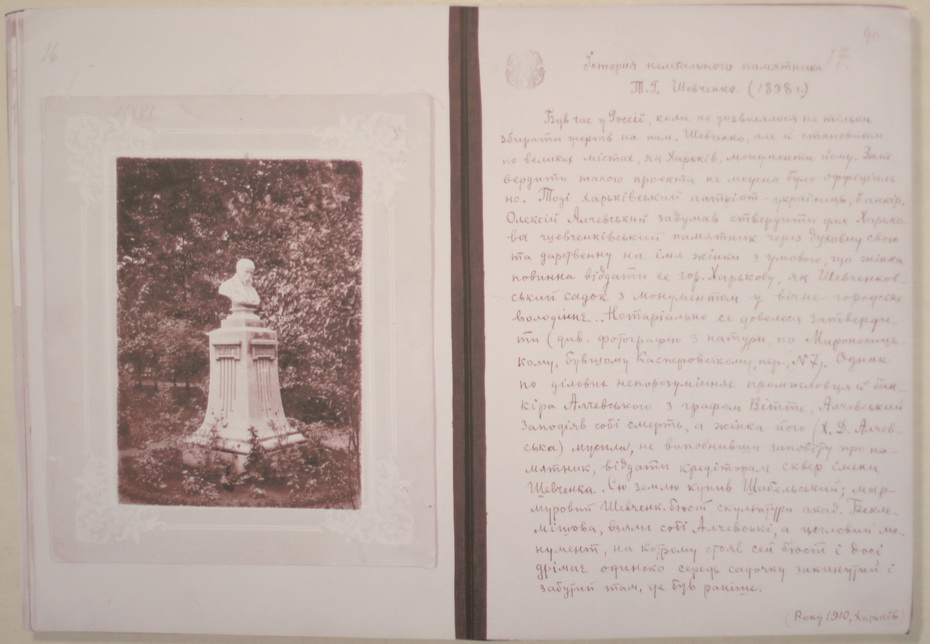 16
17.
Історія нелегального памятника
Т. Г. Шевченка (1898 г.)
Був час у Россії, коли не дозволялося не тільки
збірати жертв на пам. Шевченко, але й становити
по великих містах, як Харьків, монументи йому. Зат-
вердити такого проекти не можна було оффіціяль
но. Тоді харьківський патріот-українець, банкір,
Олексій Алчевський задумав ствердити для Харько-
ва Шевченківський памятник через духовну свою
та дарственну на імя жінки з умовою, що жінка
повинна віддати ее гор. Харькову, як Шевченков-
ський садок з монументом у вічне городське
володіннє. Нотаріально се довелося затверди-
ти (див. фотографію з натури, по Мироносиць-
кому, бувшому Касперовському, пер., N 7). Однак
по ділових непорозуміннях промисловця й бан-
кіра Алчевського з графом Вітте, Алчевський
заподіяв собі смерть, а жінка його (Х. Д. Алчев-
ська) мусила, не виповнивши заповіту про па-
мятник, віддати кредіторам сквер імени
Шевченка. Сю землю купив Шабельський; мар-
муровий Шевченк. бюст, скульптури акад. Бекле-
мішова, взяли собі Алчевські, а цегловий мо-
нумент, на котрому стояв сей бюст і досі
дрімає одиноко середь садочку закинутий і
забутий там, де був раніше.
(Року 1910, Харьків)